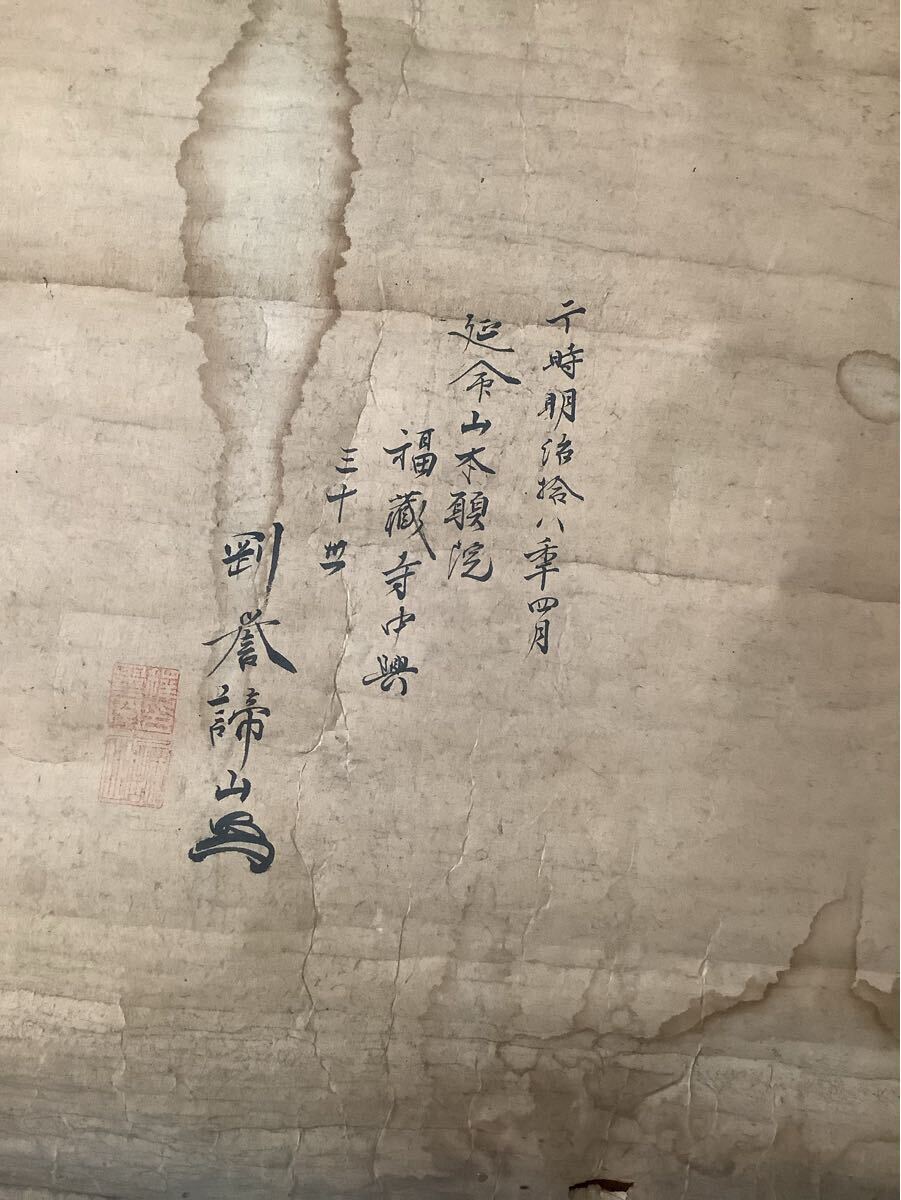 于時明治拾八季四月
延命山本願院
福藏寺中興
三十世
剛誉諦山